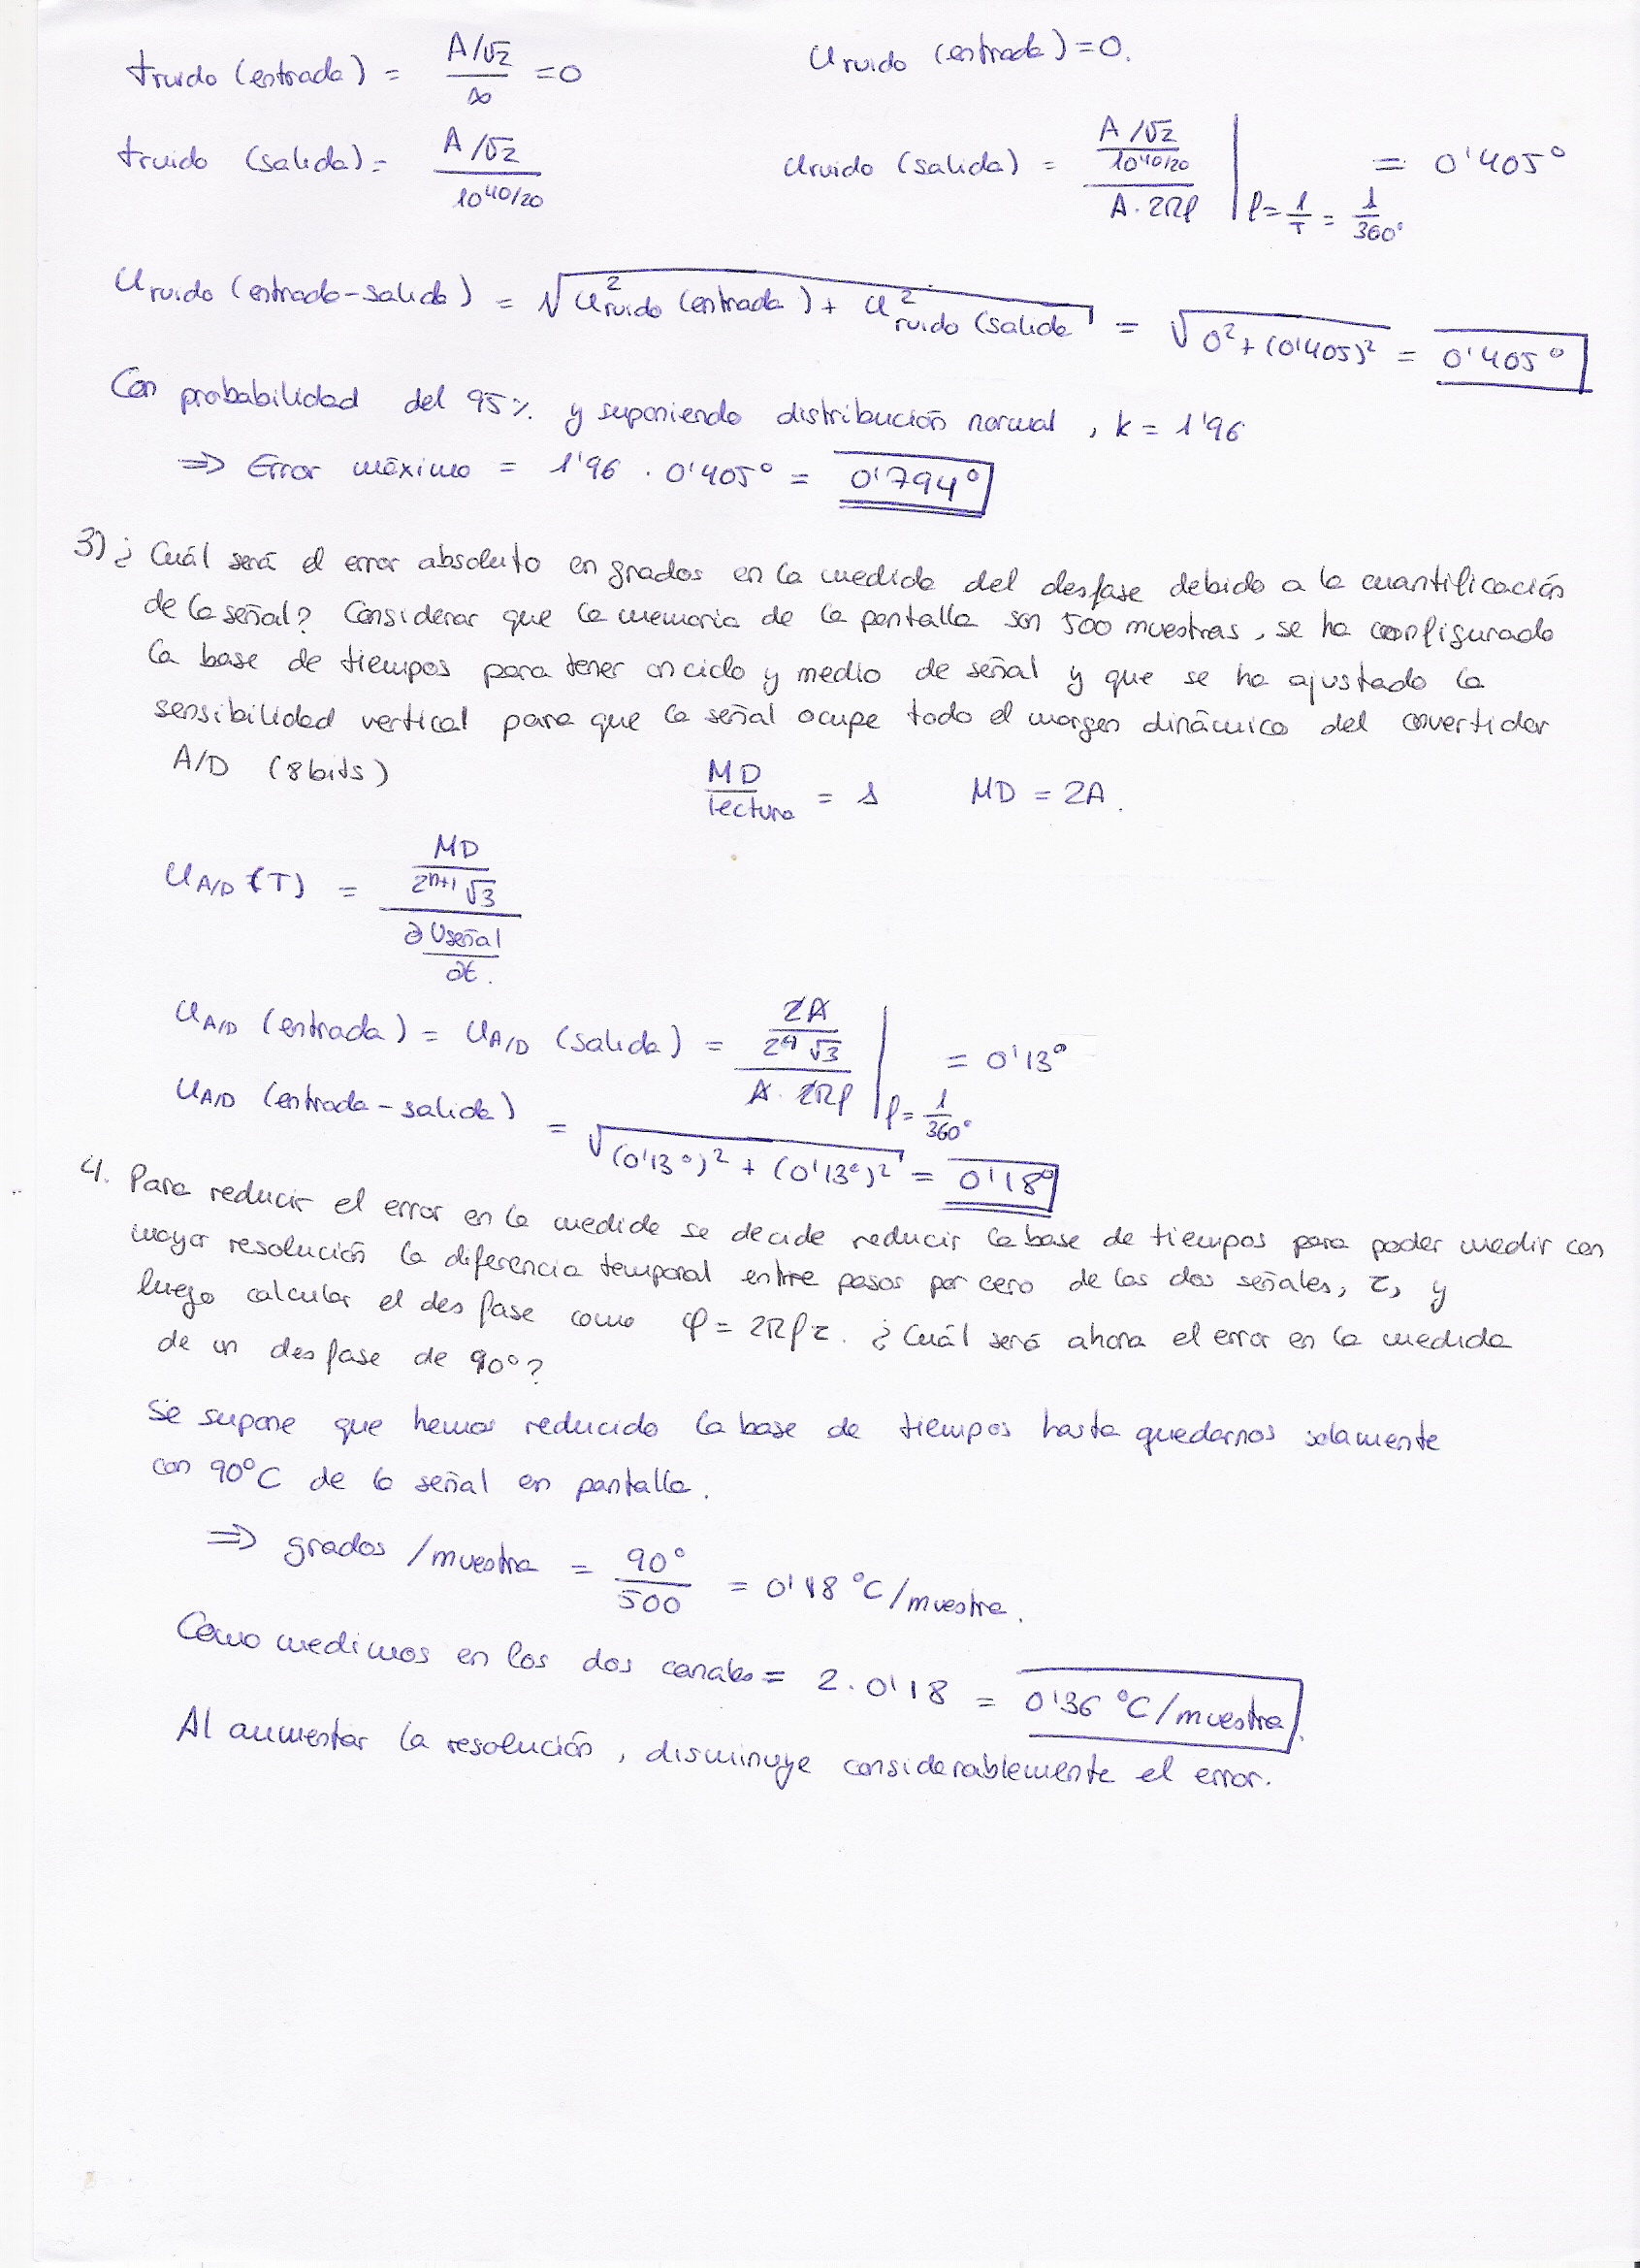 truido (entrada) = (A/√2)/∞ = 0    Uruido (entrada) = 0.
truido (salida) = (A/√2)/10^(40/20)    Uruido (salida) = ((A/√2)/10^(40/20))/(A·2πf) | f = 1/T = 1/360° = 0'405°
Uruido (entrada-salida) = √(U²ruido (entrada) + U²ruido (salida) = √(0² + (0'405)²) = 0'405°
Con probabilidad del 95% y suponiendo distribución normal, k = 1'96
⇒ Error máximo = 1'96 · 0'405° = 0'794°
3) ¿Cuál será el error absoluto en grados en la medida del desfase debido a la cuantificación
de la señal? Considerar que la memoria de la pantalla son 500 muestras, se ha configurado
la base de tiempos para tener un ciclo y medio de señal y que se ha ajustado la
sensibilidad vertical para que la señal ocupe todo el margen dinámico del covertidor
A/D (8 bits)    MD/lectura = 1    MD = 2A.
UA/D (T) = (MD/(2^(n+1) √3))/(∂Useñal/∂t.)
UA/D (entrada) = UA/D (salida) = (2A/(2^9 √3))/(A·2πf) | f = 1/360° = 0'13°
UA/D (entrada-salida) = √((0'13°)² + (0'13°)²) = 0'18°
4. Para reducir el error en la medida se decide reducir la base de tiempos para poder medir con
mayor resolución la diferencia temporal entre pasos por cero de las dos señales, τ, y
luego calcular el desfase como φ = 2πfτ. ¿Cuál será ahora el error en la medida
de un desfase de 90°?
Se supone que hemos reducido la base de tiempos hasta quedarnos solamente
con 90°C de la señal en pantalla.
⇒ grados/muestra = 90°/500 = 0'18 °C/muestra.
Como medimos en los dos canales = 2·0'18 = 0'36 °C/muestra.
Al aumentar la resolución, disminuye considerablemente el error.